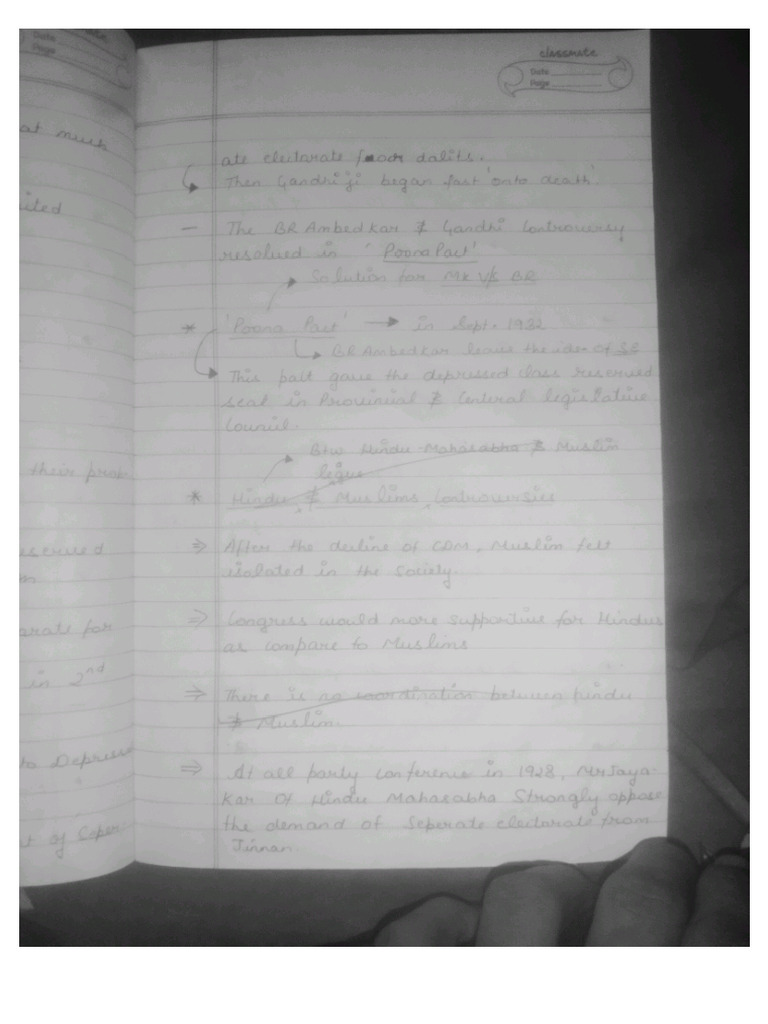 at much
ited
their prob
eserved
m
arate for
in 2nd
to Depresse
t of Seper-
classmate
Date
Page
ate electorate for dalits.
Then Gandhi ji began fast 'onto death'.
- The BR Ambedkar & Gandhi Controversy
resolved in 'Poona Pact'
Solution for MK V/s BR
* 'Poona Pact' → in Sept. 1932
BR Ambedkar leave the idea of SE
This pact gave the depressed class reserved
seat in Provincial & Central legislative
Council.
Btw Hindu Mahasabha & Muslim
legue
* Hindu & Muslims Controversies
⇒ After the decline of CDM, Muslim felt
isolated in the Society.
⇒ Congress would more supportive for Hindus
as compare to Muslims
⇒ There is no coordination between hindu
& Muslim.
⇒ At all party conference in 1928, Mr Jaya-
kar Of Hindu Mahasabha Strongly oppose
the demand of Seperate electorate from
Jinnah